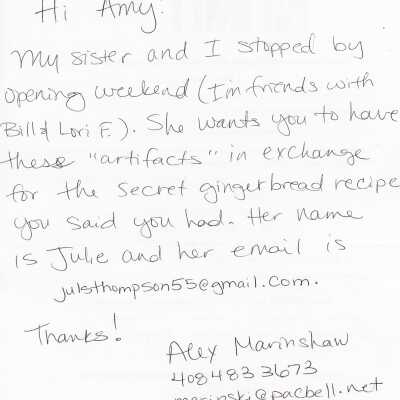 Hi Amy.
My sister and I stopped by
opening weekend (I'm friends with
Bill & Lori F.). She wants you to have
these "artifacts" in exchange
for the secret gingerbread recipe
you said you had. Her name
is Julie and her email is
julsthompson55@gmail.com.
Thanks!
Alex Marinshaw
408 483 3673
marinsk@pacbell.net